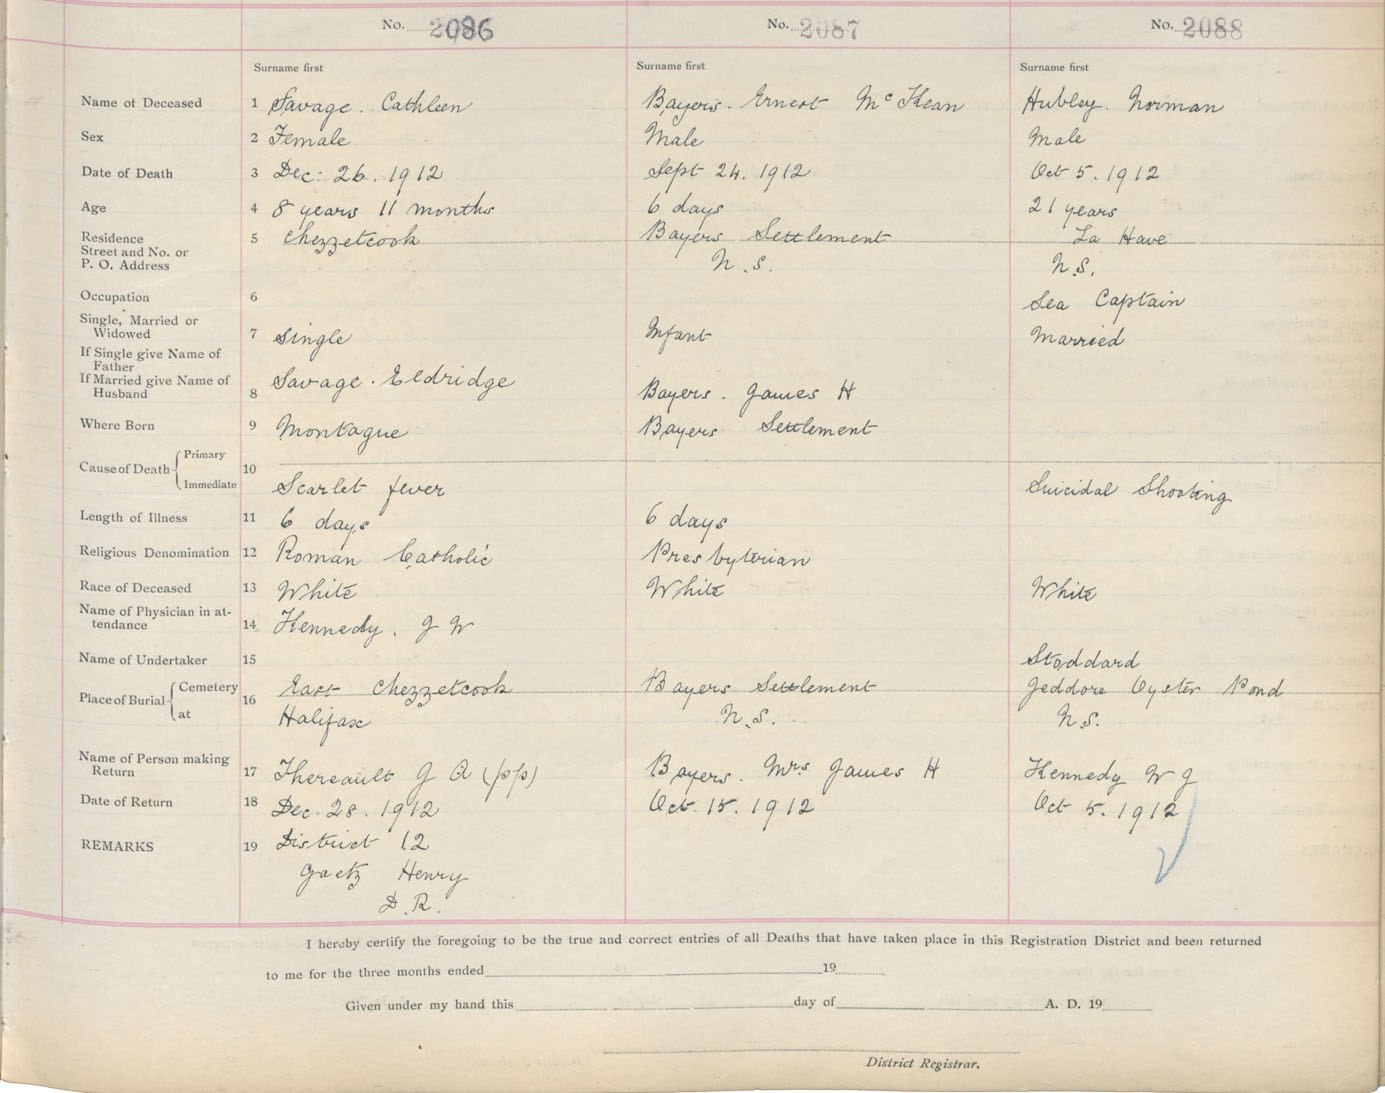 No. 2086 No. 2087 No. 2088
Surname first Surname first Surname first
Name of Deceased 1 Savage. Cathleen Bayers. Ernest McKean Hubley. Norman
Sex 2 Female Male Male
Date of Death 3 Dec: 26. 1912 Sept 24. 1912 Oct 5. 1912
Age 4 8 years 11 months 6 days 21 years
Residence 5 Chezzetcook Bayers Settlement La Have
Street and No. or
P. O. Address N.S. N.S.
Occupation 6 Sea Captain
Single, Married or
Widowed 7 Single Infant Married
If Single give Name of
Father
If Married give Name of Savage. Eldridge
Husband 8 Bayers. James H
Where Born 9 Montague Bayers Settlement
Cause of Death Primary 10
Immediate Scarlet fever Suicidal Shooting
Length of Illness 11 6 days 6 days
Religious Denomination 12 Roman Catholic Presbyterian
Race of Deceased 13 White White White
Name of Physician in at-
tendance 14 Kennedy. J W
Name of Undertaker 15 Stoddard
Place of Burial Cemetery 16 East Chezzetcook Bayers Settlement Jeddore Oyster Pond
at Halifax N.S. N.S.
Name of Person making
Return 17 Thereault J A (pp) Bayers. Mrs James H Kennedy W J
Date of Return 18 Dec. 28. 1912 Oct. 15. 1912 Oct 5. 1912
REMARKS 19 District 12
Gaetz Henry
D.R.
I hereby certify the foregoing to be the true and correct entries of all Deaths that have taken place in this Registration District and been returned
to me for the three months ended 19
Given under my hand this day of A. D. 19
District Registrar.